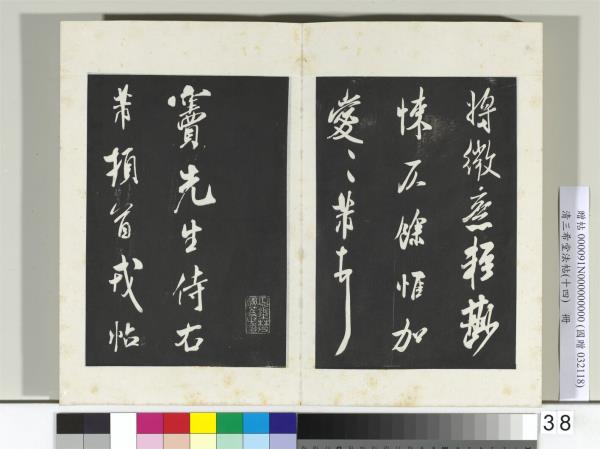 將微意輕尠
悚仄餘惟加
愛〻芾頓首
竇先生侍右
芾頓首戎帖
贈帖 000091N000000000 (國贈 032118)
清三希堂法帖(十四) 冊
38